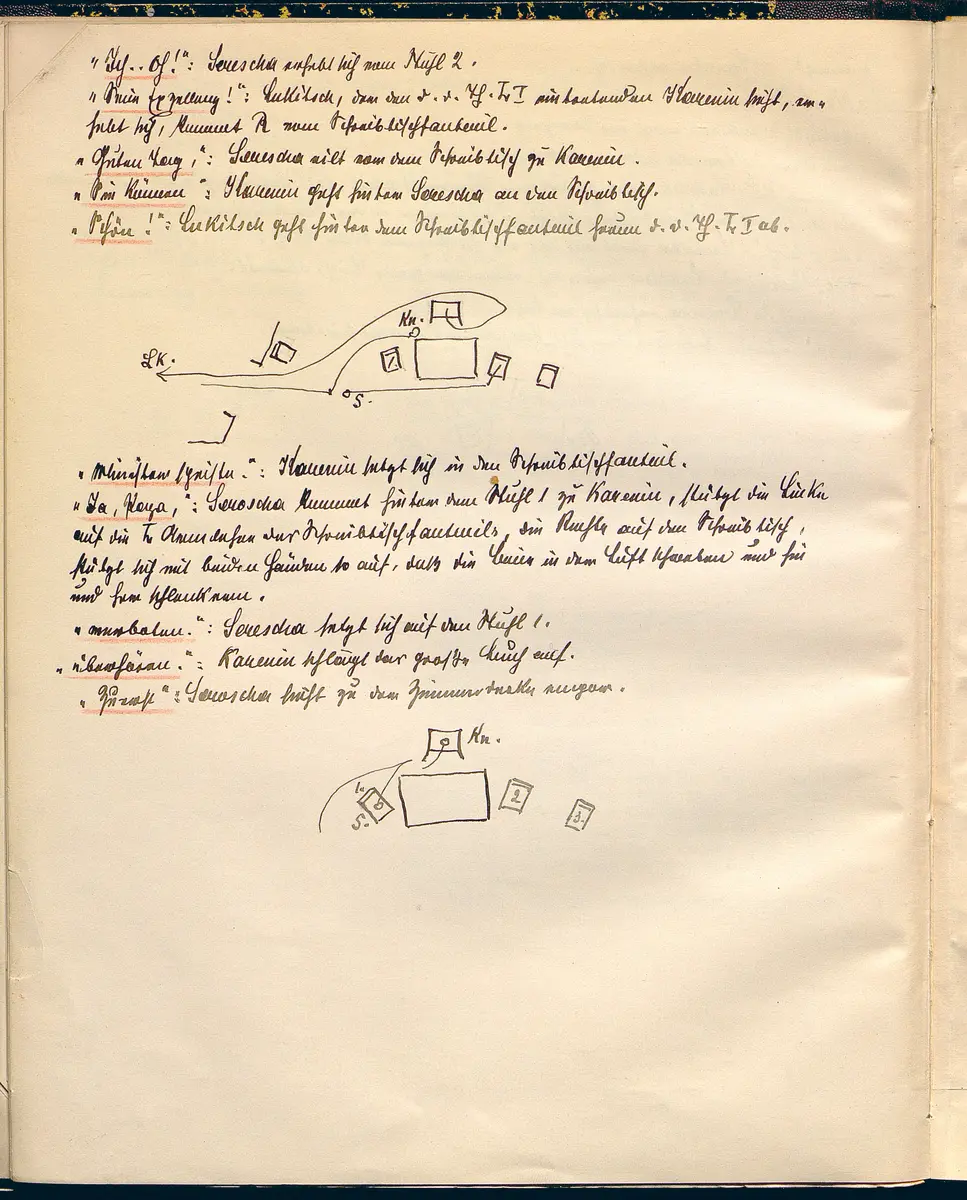 „Ich.. Oh!“: Serescha erhebt sich vom Stuhl 2.
„Seine Exzellenz!“: Lukitsch, der den d. d. Th. L. I eintretenden Karenin sieht, er=
hebt sich, kommt R vom Schreibtischfauteuil.
„Guten Tag,“: Serescha eilt von dem Schreibtisch zu Karenin.
„Sie können“: Karenin geht hinter Serescha an den Schreibtisch.
„Schön!“: Lukitsch geht hinter dem Schreibtischfauteuil herum d. d. Th. L. I ab.
Kn.
LK.
1
2
S.
„Minister heißen.“: Karenin setzt sich in den Schreibtischfauteuil.
„Ja, Papa,“: Seroscha kommt hinter dem Stuhl 1 zu Karenin, stützt die Linke
auf die L. Armlehne des Schreibtischfauteuils, die Rechte auf den Schreibtisch,
stützt sich mit beiden Händen so auf, daß die Beine in der Luft schweben und hin
und her schlenkern.
„verboten.“: Serescha setzt sich auf den Stuhl 1.
„überhören.“: Karenin schlägt das große Buch auf.
„Zuerst“: Seroscha sieht zu der Zimmerdecke empor.
Kn.
1.
S.
2
3.